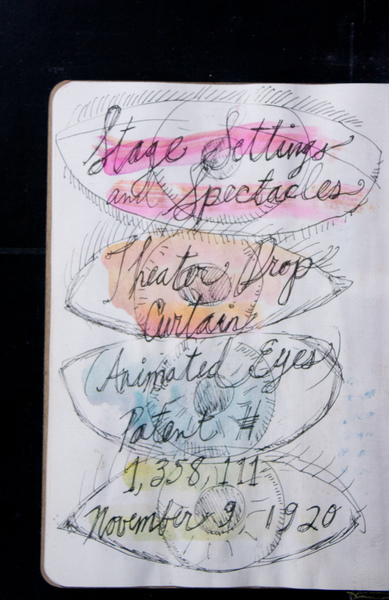 Stage Settings
and Spectacles
Theater Drop
Curtain
Animated Eyes
Patent #
1,358,111
November 9 1920